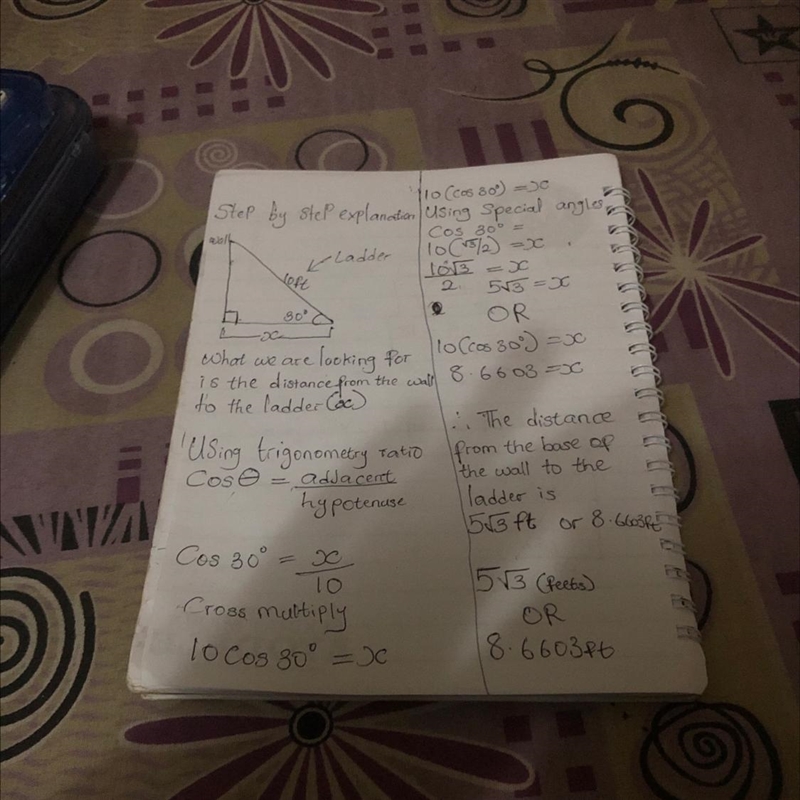 Step by step explanation
wall
Ladder
10ft
30°
x
What we are looking for
is the distance from the wall
to the ladder (x)
Using trigonometry ratio
Cosθ = adjacent
hypotenuse
Cos 30° = x
10
Cross multiply
10 Cos 30° = x
10(cos 30°) = x
Using special angles
Cos 30° =
10(√3/2) = x
10√3 = x
2. 5√3 = x
OR
10(cos 30°) = x
8.6603 = x
∴ The distance
from the base of
the wall to the
ladder is
5√3 ft or 8.6603ft
5√3 (feets)
OR
8.6603ft